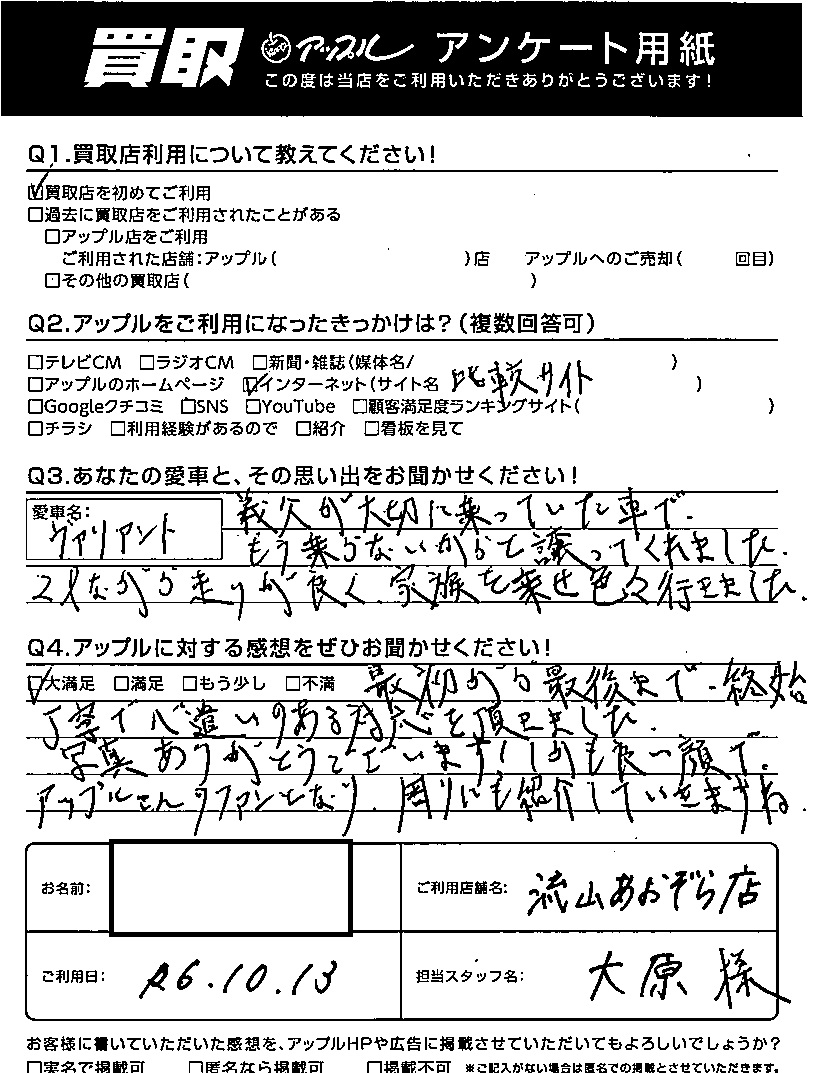 買取 アップル アンケート用紙
この度は当店をご利用いただきありがとうございます!
Q1.買取店利用について教えてください!
☑買取店を初めてご利用
□過去に買取店をご利用されたことがある
□アップル店をご利用
ご利用された店舗:アップル( )店 アップルへのご売却( 回目)
□その他の買取店( )
Q2.アップルをご利用になったきっかけは?(複数回答可)
□テレビCM □ラジオCM □新聞・雑誌(媒体名/ )
□アップルのホームページ ☑インターネット(サイト名 比較サイト )
□Googleクチコミ □SNS □YouTube □顧客満足度ランキングサイト( )
□チラシ □利用経験があるので □紹介 □看板を見て
Q3.あなたの愛車と、その思い出をお聞かせください!
愛車名: ヴァリアント
義父が大切に乗っていた車で、
もう乗らないからと譲ってくれました。
2Lながら走りが良く、家族を乗せ色々行きました。
Q4.アップルに対する感想をぜひお聞かせください!
☑大満足 □満足 □もう少し □不満
最初から最後まで、終始
丁寧で心遣いのある対応を頂きました。
写真ありがとうございます!しかも良い顔で。
アップルさんのファンとなり、周りにも紹介していきますね。
お名前:
ご利用店舗名: 流山あおぞら店
ご利用日: R6.10.13
担当スタッフ名: 大原様
お客様に書いていただいた感想を、アップルHPや広告に掲載させていただいてもよろしいでしょうか?
□実名で掲載可 □匿名なら掲載可 □掲載不可 ※ご記入がない場合は匿名での掲載とさせていただきます。